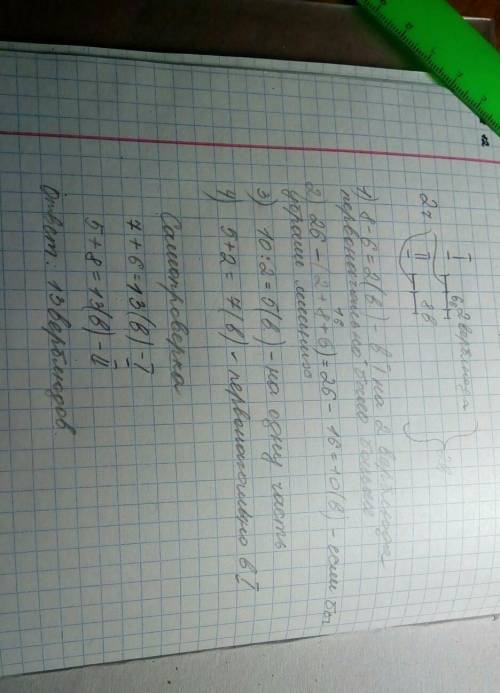 I 6в 2 верблюда
27 II 8в
1) 8-6=2(в)-в I на 2 верблюда
первоначально было больше
16
2. 26-(2+8+6)=26-16=10(в)-если бы
убрали лишнию
3) 10:2=5(в)-на одну часть
4) 5+2=7(в)-первоначально в I
Самопроверка
7+6=13(в)-I
5+8=13(в)-II
Ответ: 13 верблюдов.